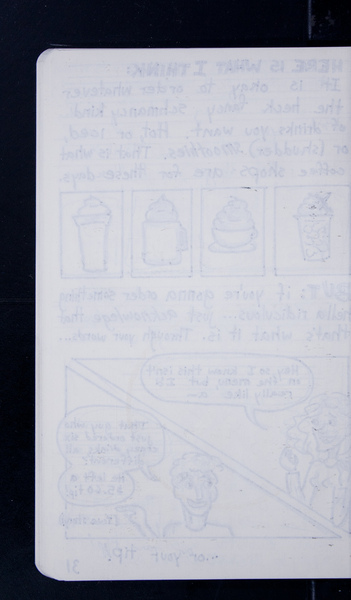 HERE IS WHAT I THINK:
It is okay to order whatever
the heck fancy schmancy kind
of drinks you want. Hot or iced,
or (shudder) smoothies. That is what
coffee shops are for these days.
BUT, if you're gonna order something
hella ridiculous... just acknowledge that
that's what it is. Through your words...
Hey, so I know this isn't
on the menu, but I'd
really like
That guy who
just ordered six
drinks, all
different?
He left a
tip!
...or your tip!
31